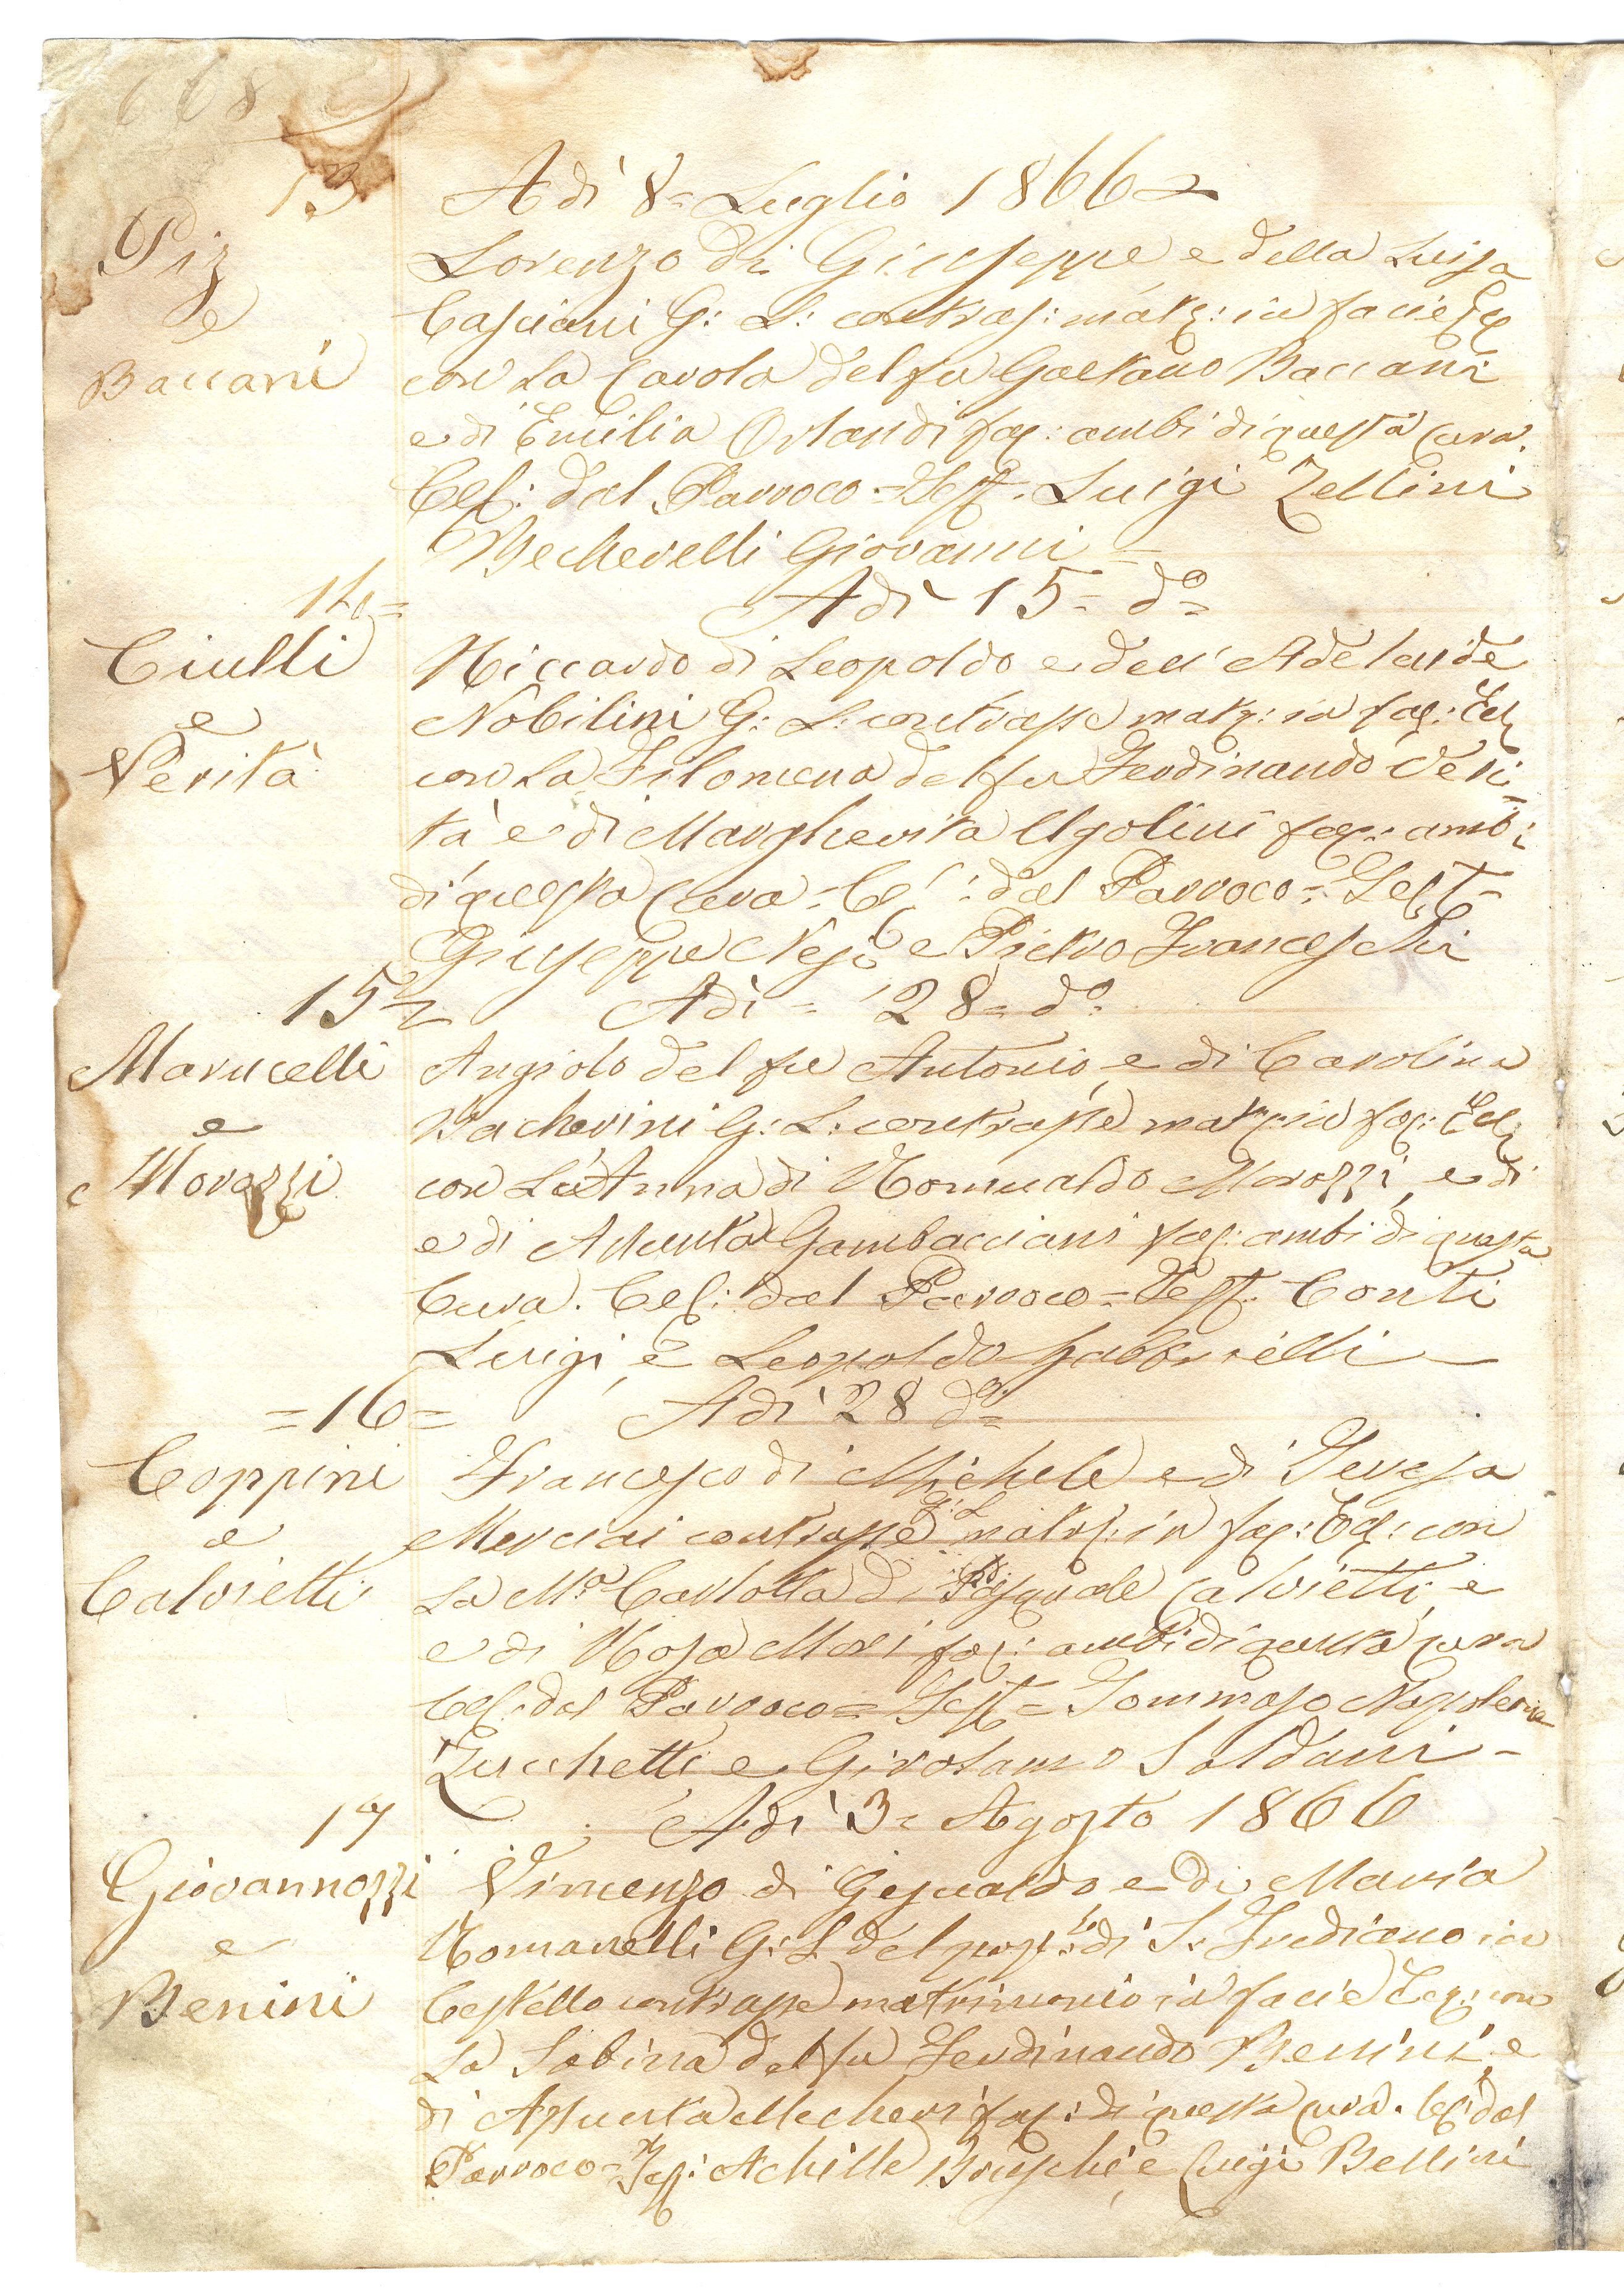 668
13
Adì 8= Luglio 1866=
Piz
e
Baccani
Lorenzo di Giuseppe e della Luisa
Casciani G: L: contras: matr: in facie Ecc
con la Carola del fu Gaetano Baccani
e di Emilia Orlandi fac: ambi di questa Cura.
Cel: dal Parroco = Test. Luigi Zellini
Becherelli Giovanni =
14= Adì 15= do=
Ciulli
e
Verità
Riccardo di Leopoldo e dell'Adelaide
Nobilini G: L: contrasse matr: in fac: Ecc
con la Filomena del fu Ferdinando Veri=
tà e di Margherita Ugolini fac: ambi
di questa Cura = Cel: dal Parroco = Test=
Giuseppe e Pietro Franceschi
15= Adì = 28= do=
Marucelli
e
Morozzi
Angiolo del fu Antonio, e di Carolina
Bacherini G: L: contrasse matr: in fac: Ecc
con L'Anna di Romualdo Morozzi, e di
e di Assunta Gambacciani fac: ambi di questa
Cura. Cel: dal Parroco = Test. Conti
Luigi, e Leopoldo Gabbrielli
=16= Adì 28 do=
Coppini
e
Calvietti
Francesco di Michele e di Teresa
Merciai contrasse G: L matr: in fac: Ecc: con
la Ma Carlotta di Pasquale Calvietti, e
e di Rosa Mori fac: ambi di questa cura
Cel: dal Parroco = Test = Tommaso Napoleone
Zucchetti e Girolamo Soldani =
17 Adì 3= Agosto 1866
Giovannozzi
e
Benini
Vincenzo di Gesualdo e di Maria
Romanelli G: L del popo: di S. Frediano in
Cestello contrasse matrimonio in facie Ecc: con
la Sabina del fu Ferdinando Benini, e
di Assunta Mecheri fac: di questa cura. Cel: dal
Parroco = Tes: Achille Bruschi, e Luigi Bellini